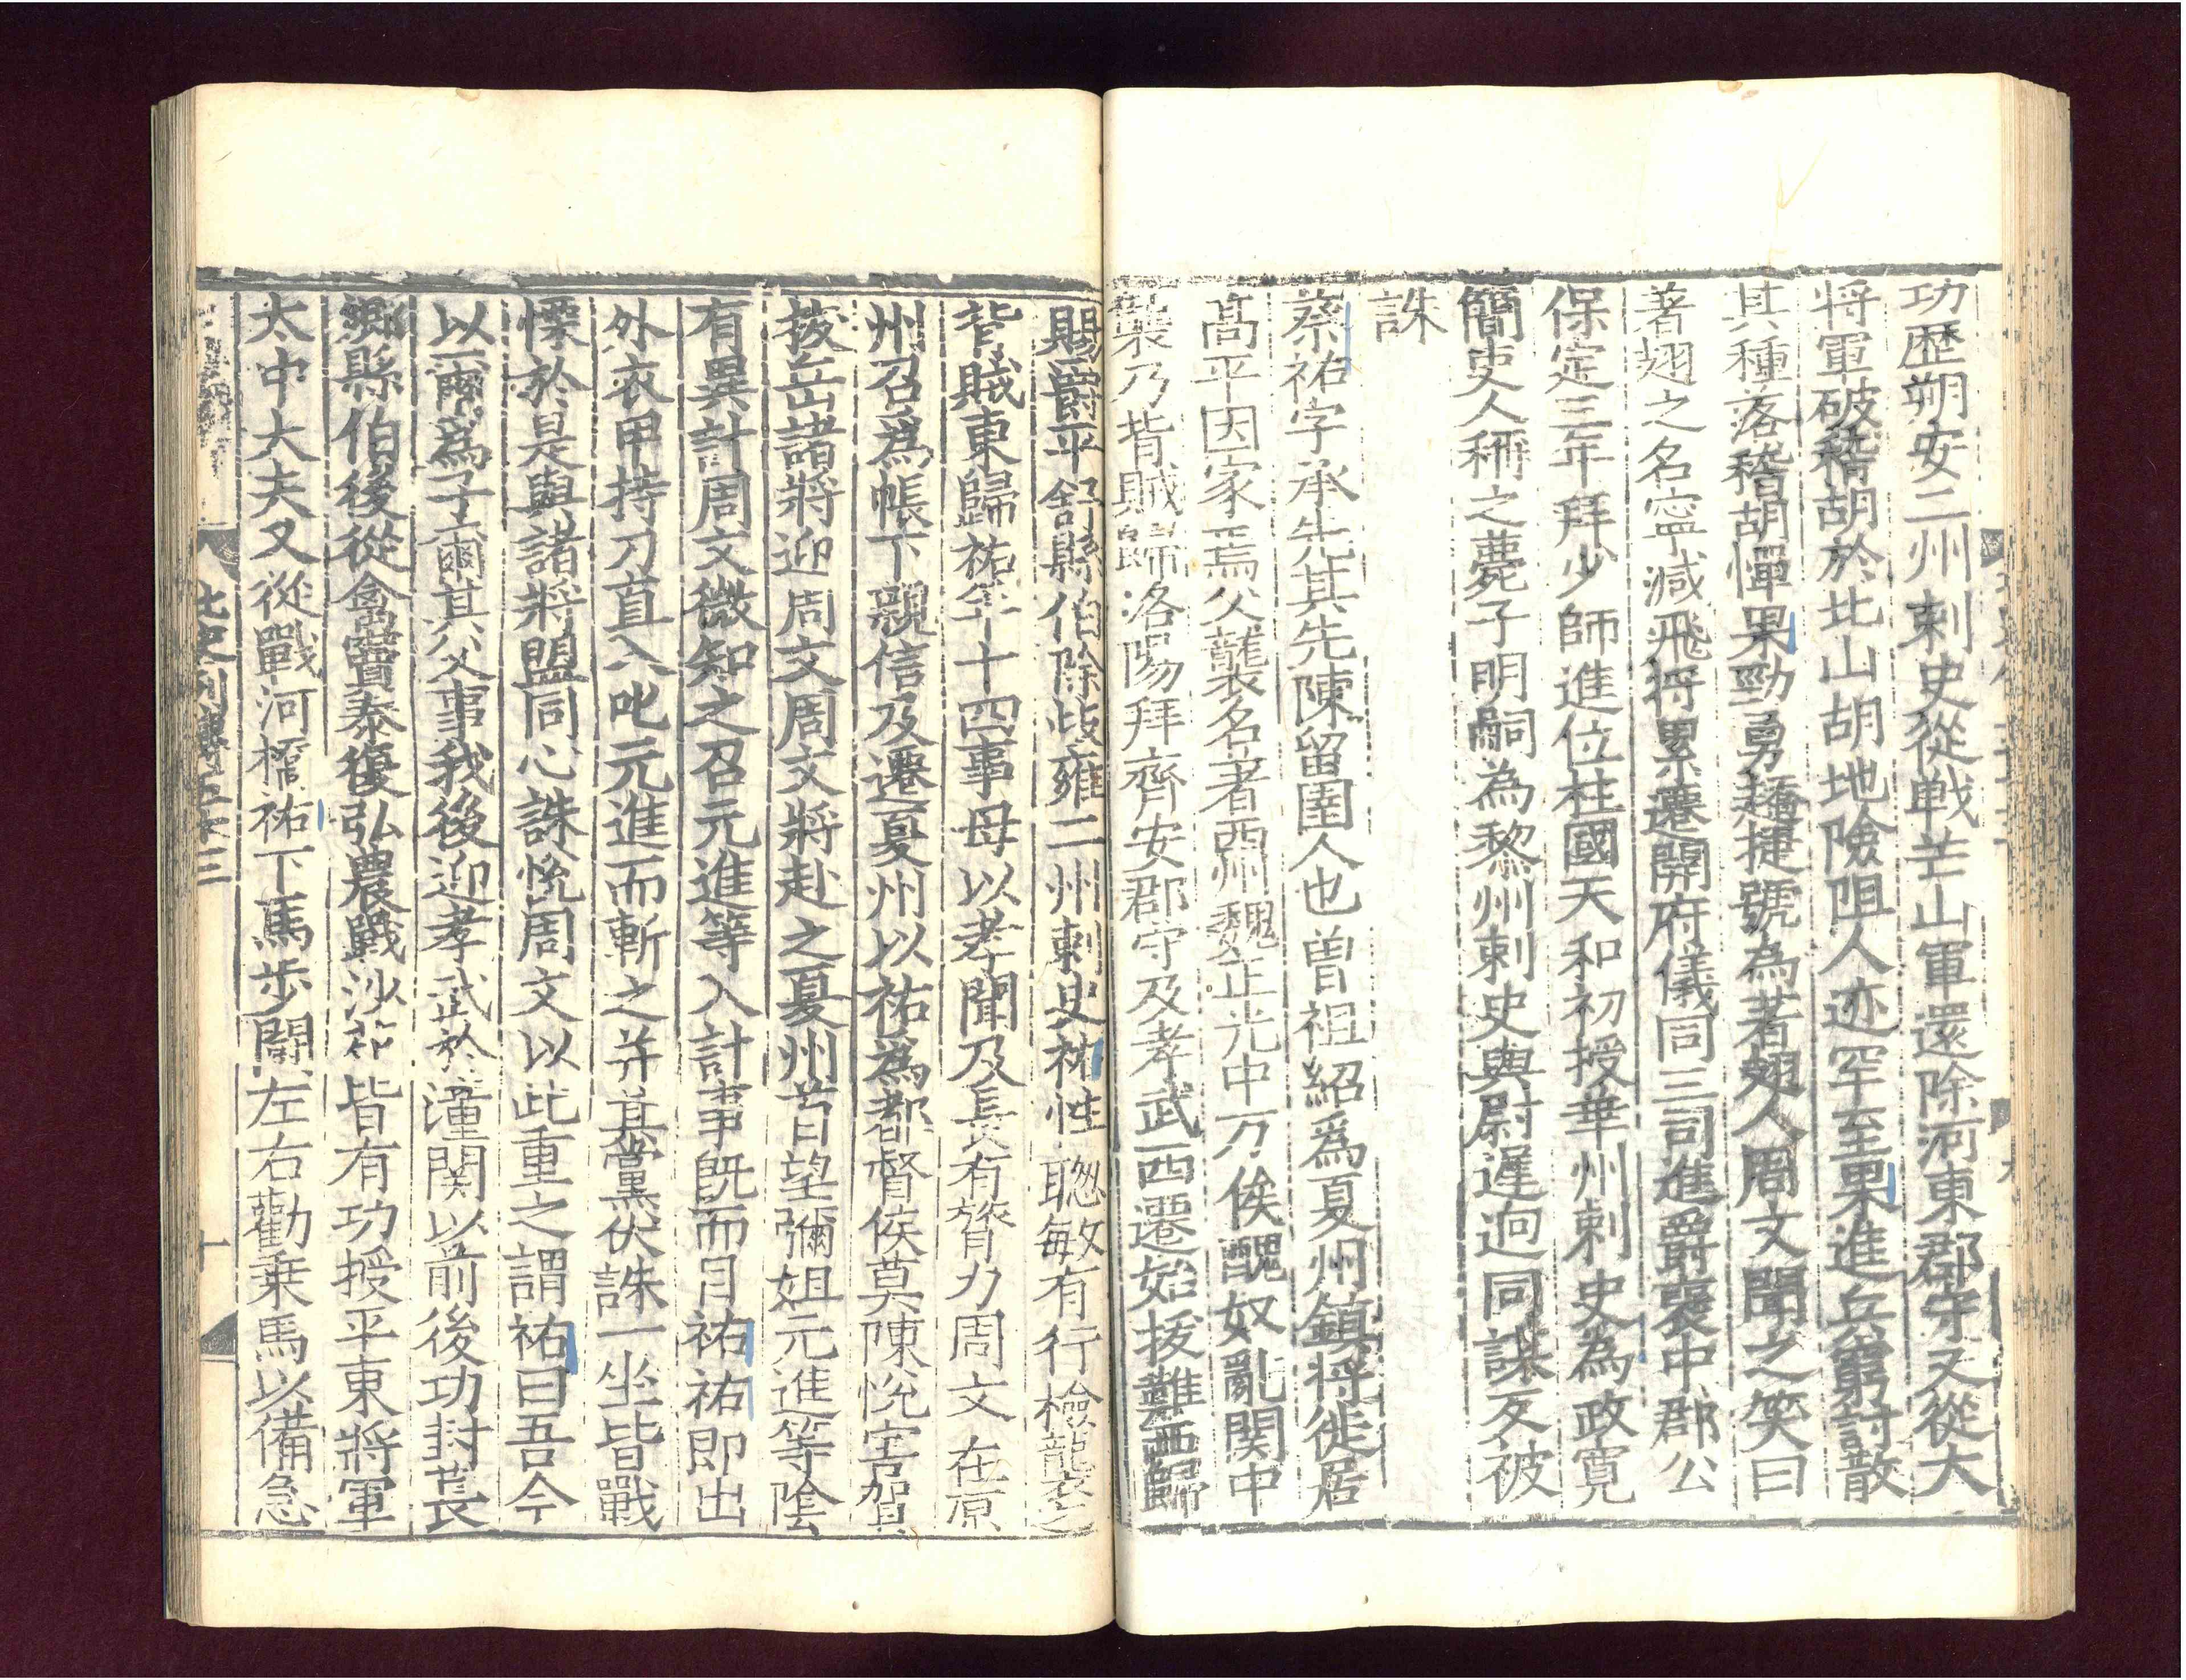 功歴朔安二州刺史從戦芒山軍還除河東郡守又從大
将軍破稽胡於北山胡地險阻人迹罕至果進兵窮討散
其種落稽胡憚果勁勇趫捷號為著翅人周文聞之笑曰
著翅之名寧減飛将累遷開府儀同三司進爵襃中郡公
保定三年拜少師進位柱國天和初授華州刺史為政寛
簡吏人稱之薨子明嗣為黎州刺史與尉遲迥同謀反被
誅
蔡祐字承先其先陳留圉人也曽祖紹爲夏州鎮将徙居
髙平因家焉父襲名著西州魏正光中万俟醜奴亂関中
襲乃背賊歸洛陽拜齊安郡守及孝武西遷始拔難西歸
賜爵平舒縣伯除岐雍二州刺史祐性聦敏有行檢襲之
背賊東歸祐年十四事母以孝聞及長有膂力周文在原
州召爲帳下親信及遷夏州以祐爲都督侯莫陳悅害賀
拔岳諸將迎周文周文將赴之夏州首望彌姐元進等陰
有異計周文微知之召元進等入計事既而目祐祐即出
外衣甲持刀直入叱元進而斬之并其黨伏誅一坐皆戰
慄於是與諸將盟同心誅悅周文以此重之謂祐曰吾今
以爾為子爾其父事我後迎孝武於潼関以前後功封萇
鄉縣伯後從禽竇泰復弘農戰沙苑皆有功授平東將軍
太中大夫又從戰河橋祐下馬步鬭左右勸乗馬以備急
北史列傳五十三
十